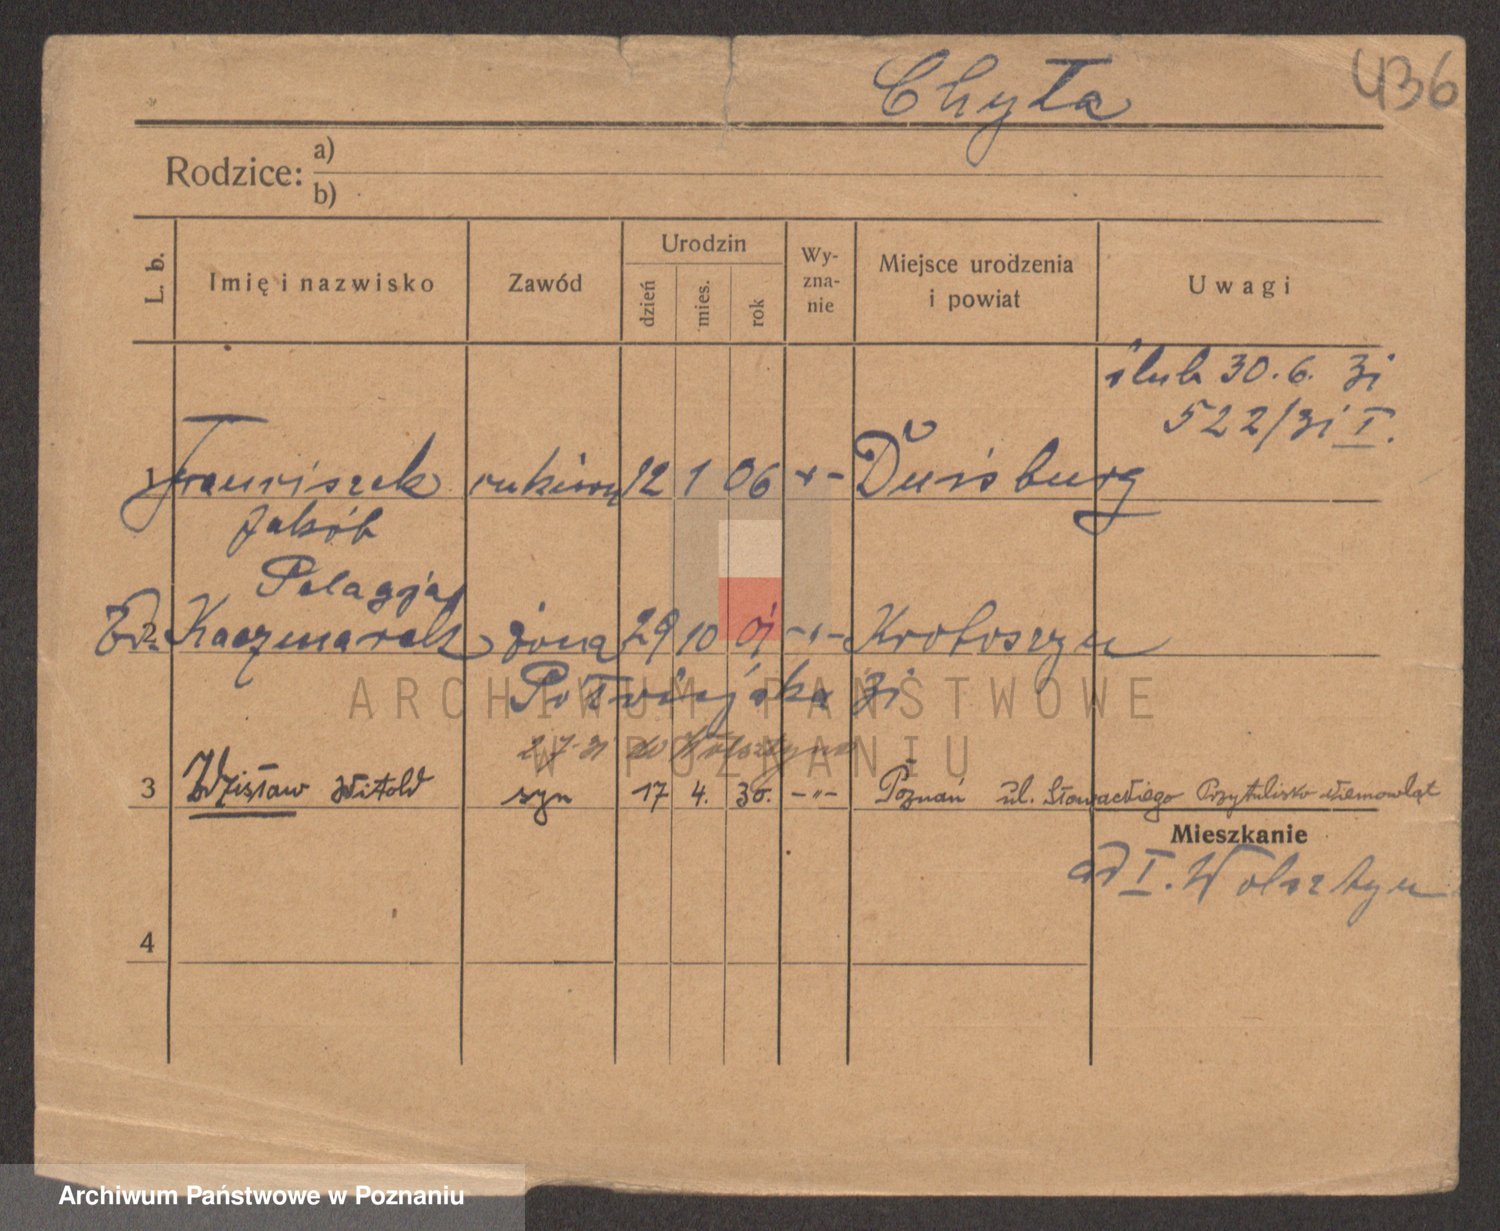 436
Chyła
Rodzice: a)
b)
L. b.
Imię i nazwisko
Zawód
Urodzin
dzień
mies.
rok
Wy-
zna-
nie
Miejsce urodzenia
i powiat
Uwagi
ślub 30.6. 31
522/31 I.
1 Franciszek 12 1 06 Duisburg
Jakób
Pelagja
2 Kaczmarek żona 29 10 01 Krotoszyn
31
ARCHIWUM PAŃSTWOWE
W POZNANIU
3 Zdzisław Witold syn 17 4. 30. -"- Poznań ul. Słowackiego Przytulisko niemowląt
Mieszkanie
I. Wolsztyn
4
Archiwum Państwowe w Poznaniu